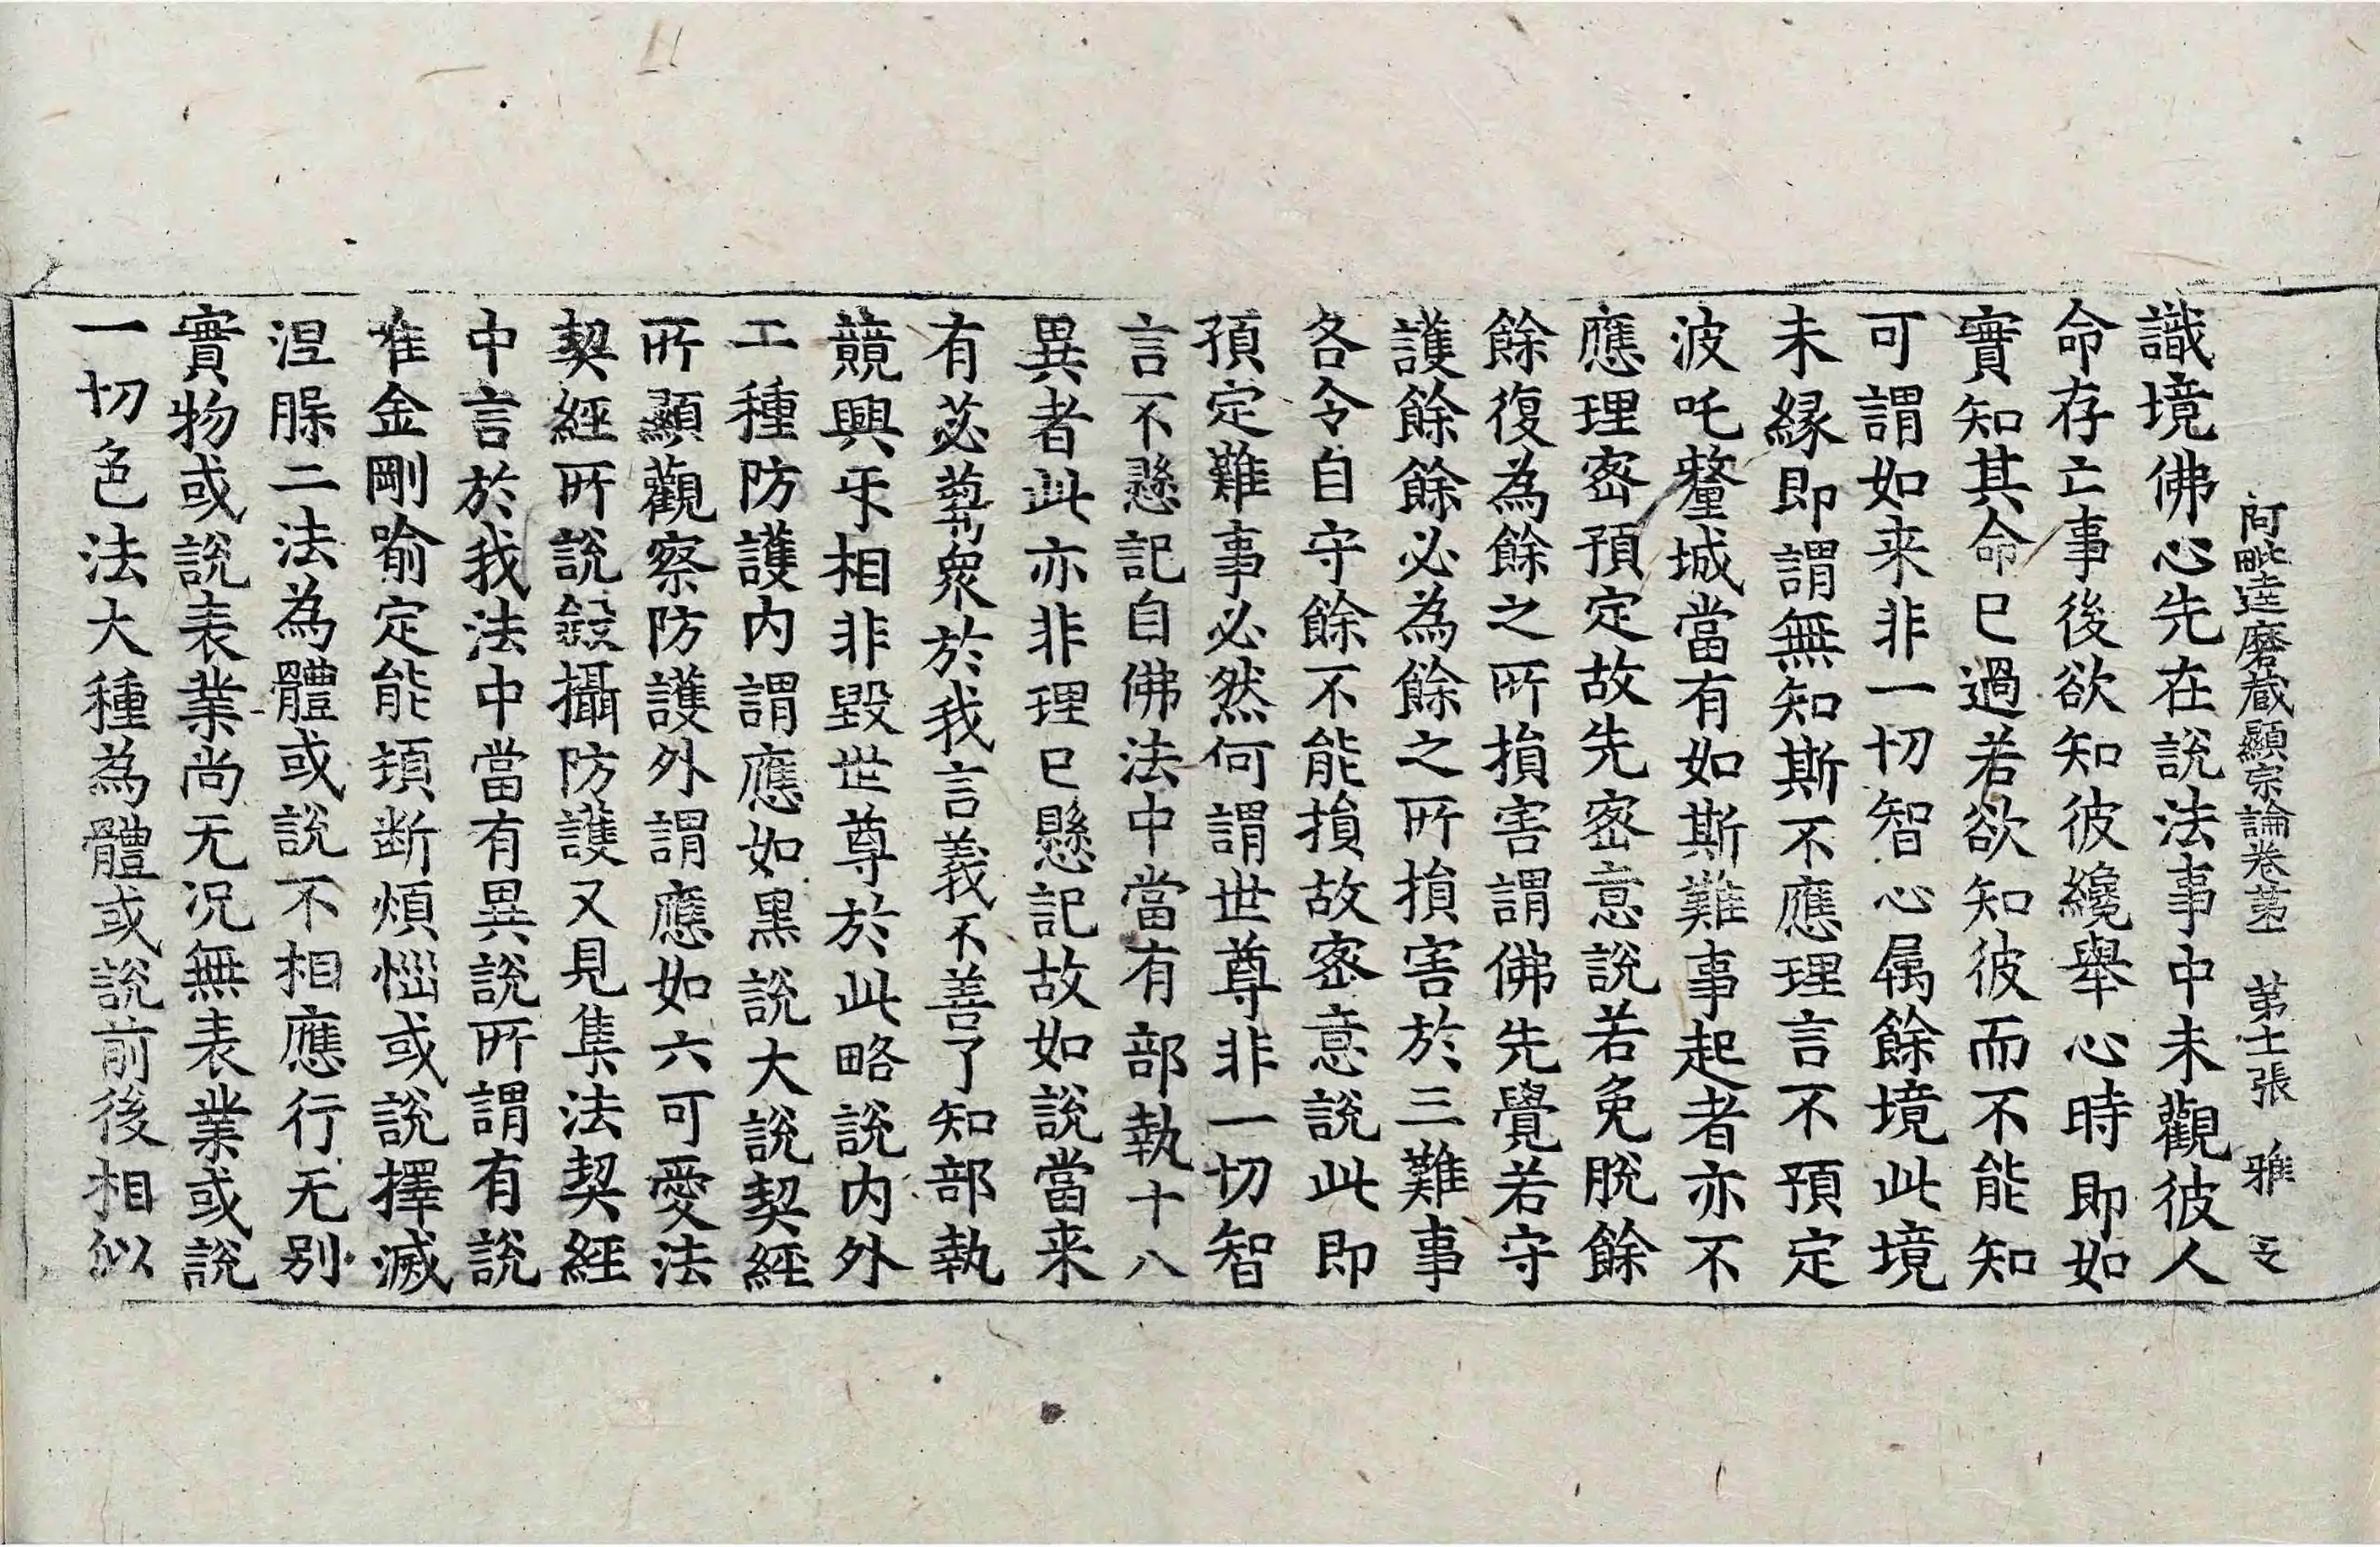 阿毗達磨藏顯宗論卷第一　第十二張　雅
識境佛心先在說法事中未觀彼人
命存亡事後欲知彼纔舉心時即如
實知其命已過若欲知彼而不能知
可謂如来非一切智心属餘境此境
未緣即謂無知斯不應理言不預定
波吒釐城當有如斯難事起者亦不
應理密預定故先密意說若免脫餘
餘復為餘之所損害謂佛先覺若守
護餘餘必為餘之所損害於三難事
各令自守餘不能損故密意說此即
預定難事必然何謂世尊非一切智
言不懸記自佛法中當有部執十八
異者此亦非理已懸記故如說當来
有苾蒭眾於我言義不善了知部執
競興㸦相非毀世尊於此略說内外
二種防護内謂應如黑說大說契經
所顯觀察防護外謂應如六可愛法
契經所說攝防護又見集法契經
中言於我法中當有異說所謂有說
唯金剛喻定能頓断煩惱或說擇滅
涅脲二法為體或說不相應行无別
實物或說表業尚无況無表業或說
一切色法大種為體或說前後相似